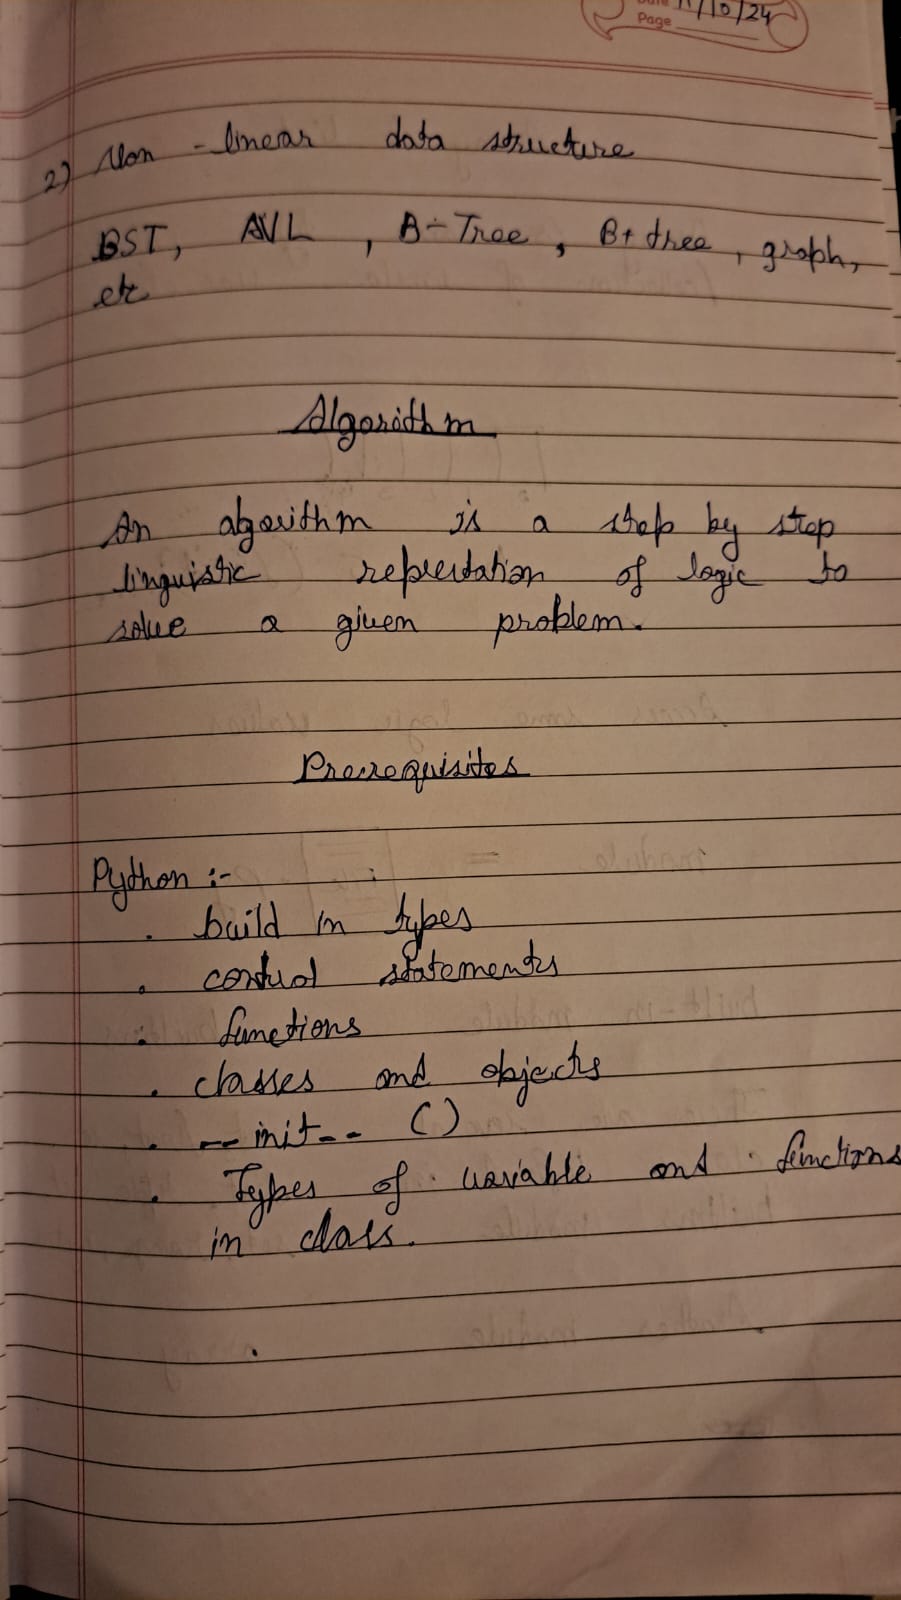 Page 11/10/24
2) Non - linear data structure
BST, AVL, B-Tree, B+ tree, graph,
etc
Algorithm
An algorithm is a step by step
linguistic represtation of logic to
solve a given problem.
Prerequisites
Python :-
. build in types
. control statements
. functions
. classes and objects
. -- init -- ()
. Types of variable and functions
in class.